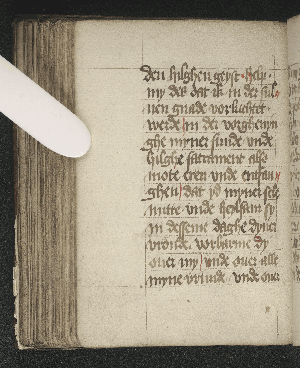 den hilghen geyst · help
my des dat ik in der sul
uen gnade vorluchtet
werde in der vorgheuyn
ghe myner sunde vnde
hilghe sacrament also
mote eren vnde entfan
ghen dat yd myner sele
nutte vnde heylsam sy
in desseme daghe dyner
vronde. vorbarme dy
ouer my vnde ouer alle
myne vrunde. vnde ouer